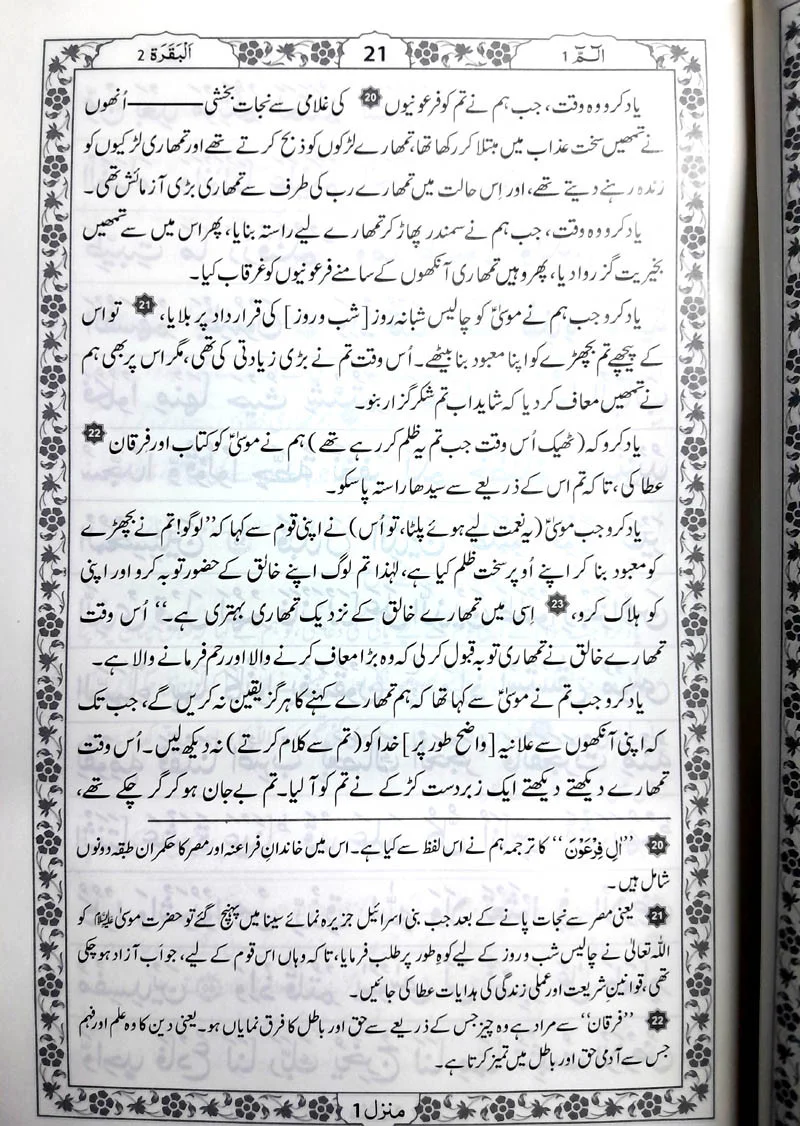 الٓـمّٓ 1
21
اَلْبَقَرَة 2
یاد کرو وہ وقت، جب ہم نے تم کو فرعونیوں 20 کی غلامی سے نجات بخشی ——— اُنھوں
نے تمھیں سخت عذاب میں مبتلا کر رکھا تھا، تمھارے لڑکوں کو ذبح کرتے تھے اور تمھاری لڑکیوں کو
زندہ رہنے دیتے تھے، اور اِس حالت میں تمھارے رب کی طرف سے تمھاری بڑی آزمائش تھی۔
یاد کرو وہ وقت، جب ہم نے سمندر پھاڑ کر تمھارے لیے راستہ بنایا، پھر اس میں سے تمھیں
بخیریت گزروا دیا، پھر وہیں تمھاری آنکھوں کے سامنے فرعونیوں کو غرقاب کیا۔
یاد کرو جب ہم نے موسیٰؑ کو چالیس شبانہ روز [شب و روز] کی قرارداد پر بلایا، 21 تو اس
کے پیچھے تم بچھڑے کو اپنا معبود بنا بیٹھے۔ اُس وقت تم نے بڑی زیادتی کی تھی، مگر اس پر بھی ہم
نے تمھیں معاف کر دیا کہ شاید اب تم شکر گزار بنو۔
یاد کرو کہ (ٹھیک اُس وقت جب تم یہ ظلم کر رہے تھے) ہم نے موسیٰؑ کو کتاب اور فرقان 22
عطا کی، تاکہ تم اس کے ذریعے سے سیدھا راستہ پا سکو۔
یاد کرو جب موسیٰؑ (یہ نعمت لیے ہوئے پلٹا، تو اُس) نے اپنی قوم سے کہا کہ ”لوگو! تم نے بچھڑے
کو معبود بنا کر اپنے اُوپر سخت ظلم کیا ہے، لہٰذا تم لوگ اپنے خالق کے حضور توبہ کرو اور اپنی
کو ہلاک کرو، 23 اِسی میں تمھارے خالق کے نزدیک تمھاری بہتری ہے۔“ اُس وقت
تمھارے خالق نے تمھاری توبہ قبول کر لی کہ وہ بڑا معاف کرنے والا اور رحم فرمانے والا ہے۔
یاد کرو جب تم نے موسیٰؑ سے کہا تھا کہ ہم تمھارے کہنے کا ہرگز یقین نہ کریں گے، جب تک
کہ اپنی آنکھوں سے علانیہ [واضح طور پر] خدا کو (تم سے کلام کرتے) نہ دیکھ لیں۔ اُس وقت
تمھارے دیکھتے دیکھتے ایک زبردست کڑکے نے تم کو آ لیا۔ تم بے جان ہو کر گر چکے تھے،
20 ”اٰلِ فِرْعَوْنَ“ کا ترجمہ ہم نے اس لفظ سے کیا ہے۔ اس میں خاندانِ فراعنہ اور مصر کا حکمران طبقہ دونوں
شامل ہیں۔
21 یعنی مصر سے نجات پانے کے بعد جب بنی اسرائیل جزیرہ نمائے سینا میں پہنچ گئے تو حضرت موسیٰ علیہ السلام کو
اللہ تعالیٰ نے چالیس شب و روز کے لیے کوہِ طور پر طلب فرمایا، تاکہ وہاں اس قوم کے لیے، جو اَب آزاد ہو چکی
تھی، قوانینِ شریعت اور عملی زندگی کی ہدایات عطا کی جائیں۔
22 ”فرقان“ سے مراد ہے وہ چیز جس کے ذریعے سے حق اور باطل کا فرق نمایاں ہو۔ یعنی دین کا وہ علم اور فہم
جس سے آدمی حق اور باطل میں تمیز کرتا ہے۔
منزل 1